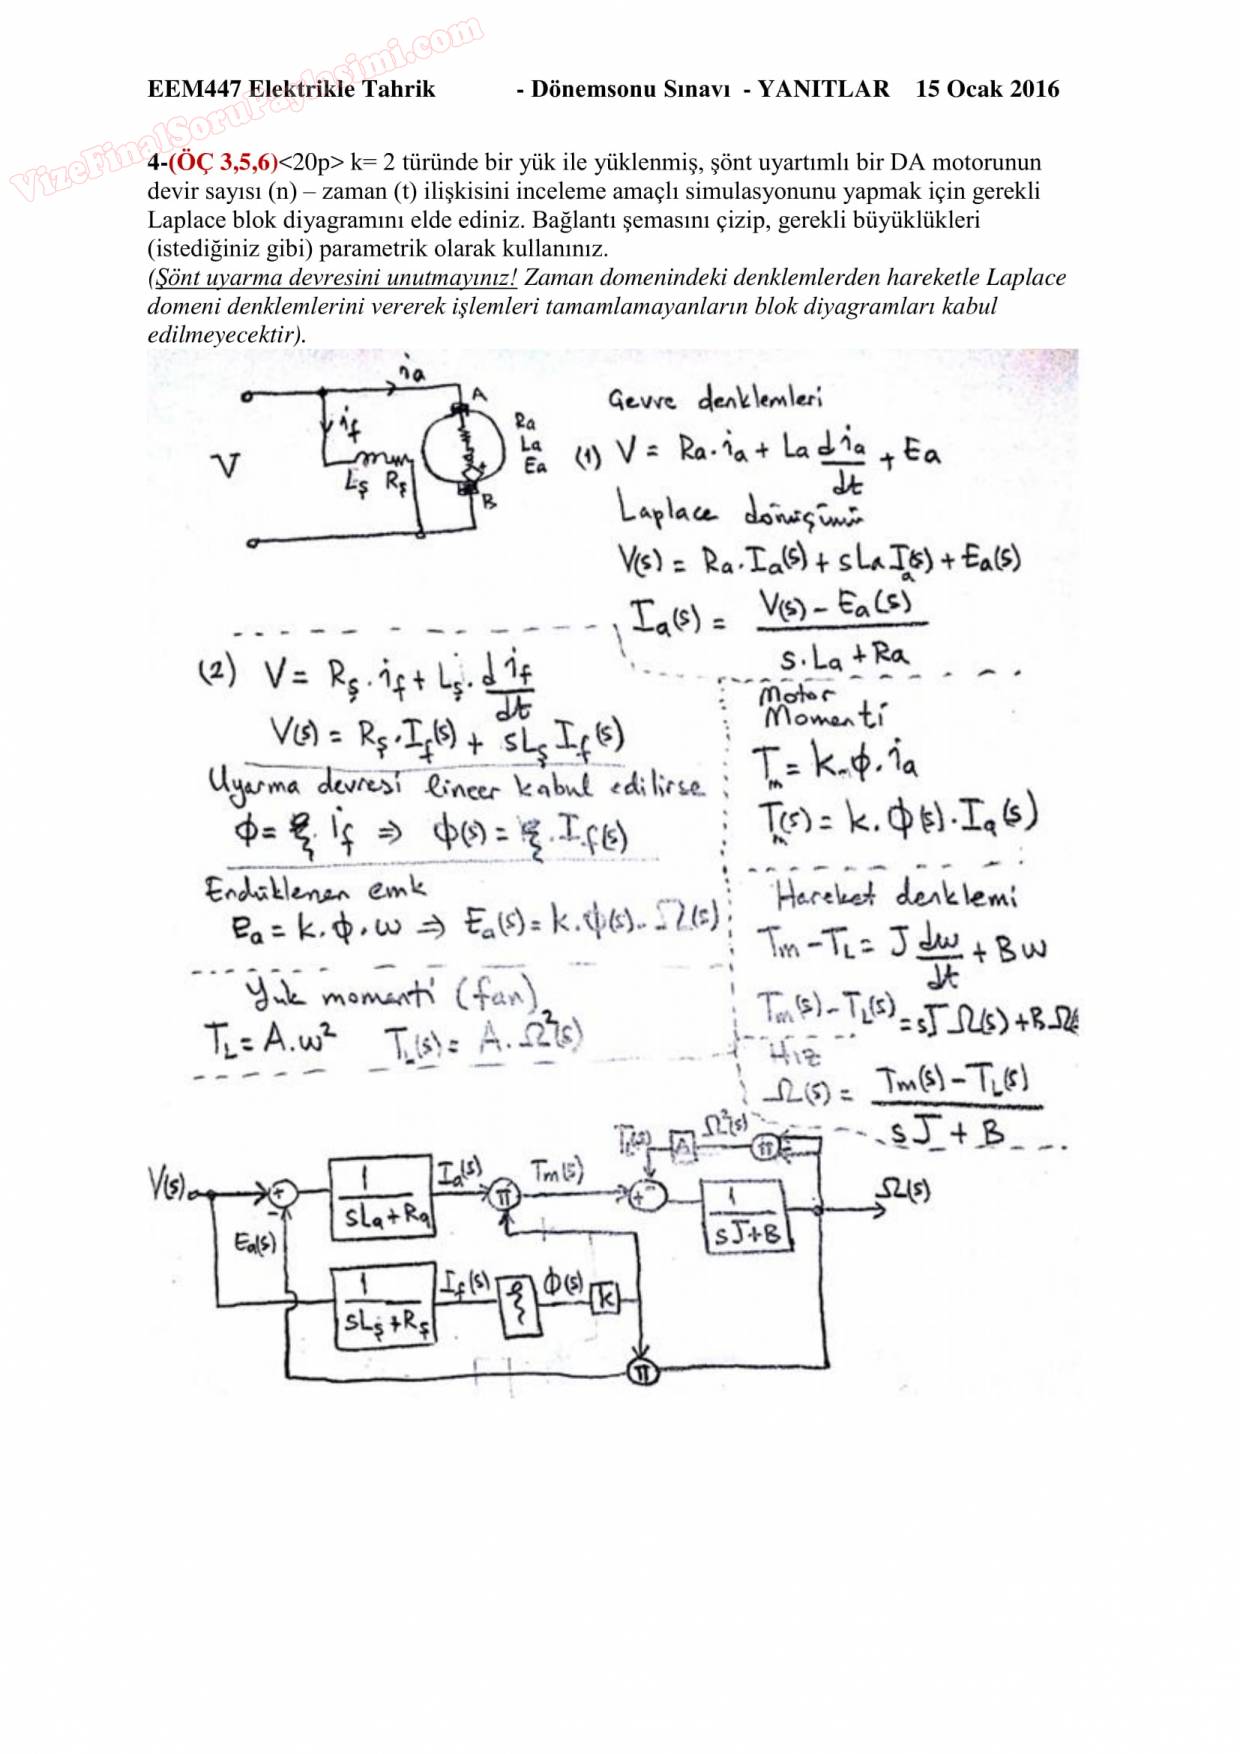 VizeFinalSoruPaylasimi.com
EEM447 Elektrikle Tahrik - Dönemsonu Sınavı - YANITLAR 15 Ocak 2016
4-(ÖÇ 3,5,6)<20p> k= 2 türünde bir yük ile yüklenmiş, şönt uyartımlı bir DA motorunun
devir sayısı (n) – zaman (t) ilişkisini inceleme amaçlı simulasyonunu yapmak için gerekli
Laplace blok diyagramını elde ediniz. Bağlantı şemasını çizip, gerekli büyüklükleri
(istediğiniz gibi) parametrik olarak kullanınız.
(Şönt uyarma devresini unutmayınız! Zaman domenindeki denklemlerden hareketle Laplace
domeni denklemlerini vererek işlemleri tamamlamayanların blok diyagramları kabul
edilmeyecektir).
ia
A
if
V
Lş Rş
B
Ra
La
Ea
Çevre denklemleri
(1) V = Ra.ia + La dia/dt + Ea
Laplace dönüşümü
V(s) = Ra.Ia(s) + sLa Ia(s) + Ea(s)
Ia(s) = (V(s) - Ea(s)) / (s.La + Ra)
(2) V = Rş.if + Lş.dif/dt
V(s) = Rş.If(s) + sLş If(s)
Uyarma devresi lineer kabul edilirse
Φ = ξ.if ⇒ Φ(s) = ξ.If(s)
Endüklenen emk
ea = k.Φ.ω ⇒ Ea(s) = k.Φ(s).Ω(s)
Yük momenti (fan)
TL = A.ω² TL(s) = A.Ω²(s)
Motor
Momenti
Tm = k.Φ.ia
Tm(s) = k.Φ(s).Ia(s)
Hareket denklemi
Tm - TL = J dω/dt + Bω
Tm(s) - TL(s) = sJ Ω(s) + B Ω(s
Hız
Ω(s) = (Tm(s) - TL(s)) / (sJ + B)
TL(s) A Ω²(s) π
V(s) + - 1/(sLa+Ra) Ia(s) π Tm(s) + - 1/(sJ+B) Ω(s)
Ea(s)
1/(sLş+Rş) If(s) ξ Φ(s) k
π